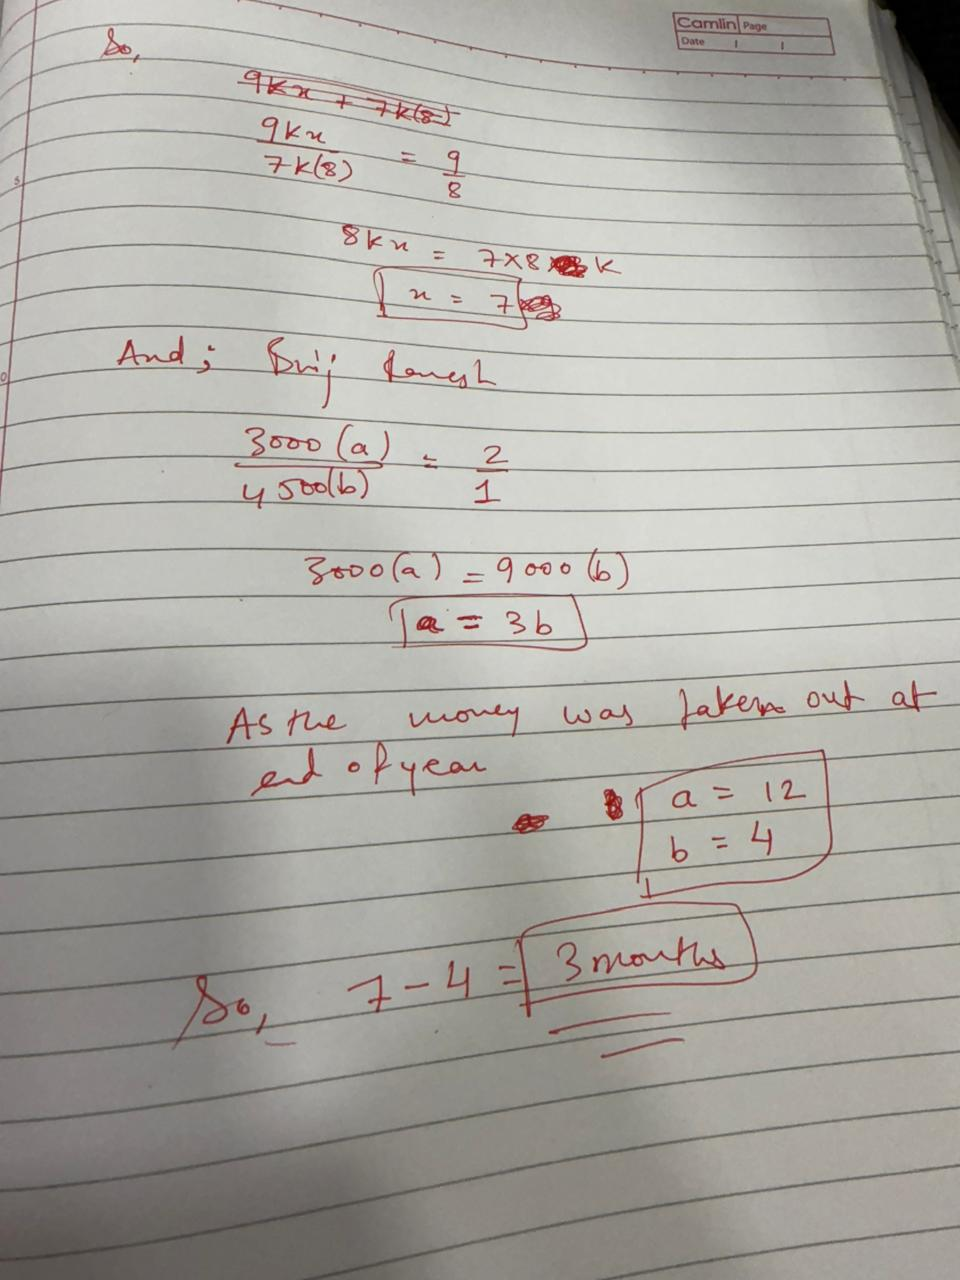 Camlin Page
Date
So,
9kx + 7k(8)
9kx / 7k(8) = 9/8
8kx = 7×8 k
x = 7
And; Brij Ramesh
3000(a) / 4500(b) = 2/1
3000(a) = 9000(b)
a = 3b
As the money was taken out at
end of year
a = 12
b = 4
So, 7-4 = 3 months